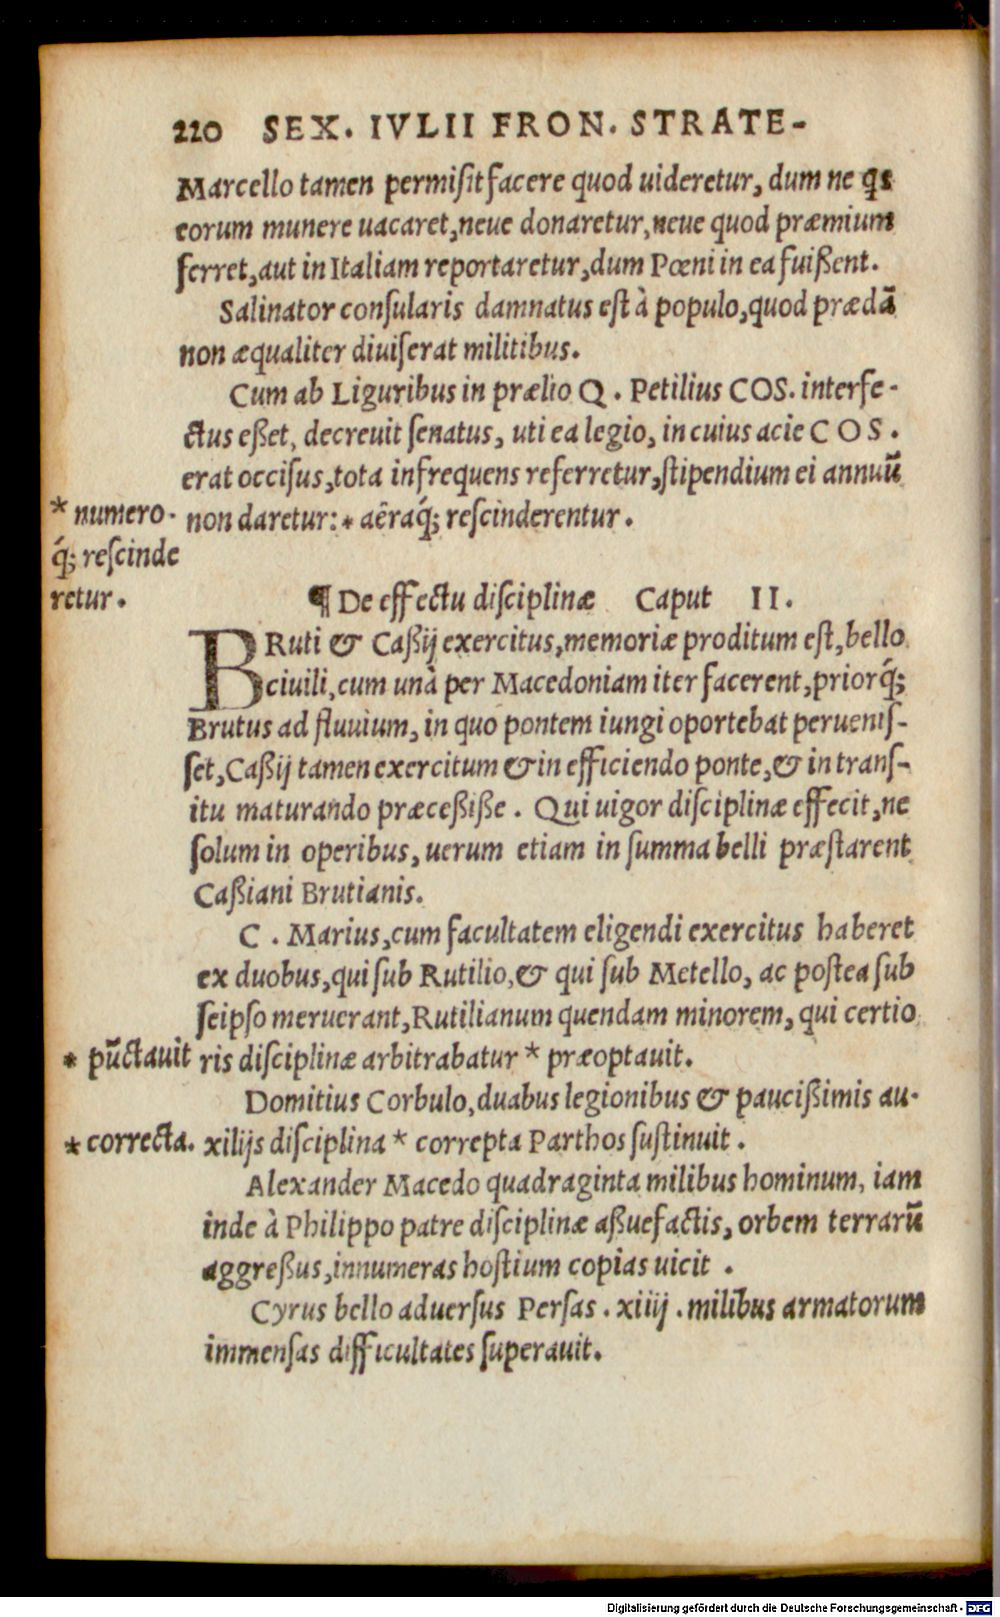 220 SEX. IVLII FRON. STRATE-
Marcello tamen permiſit facere quod uideretur, dum ne qs
eorum munere uacaret, neue donaretur, neue quod præmium
ferret, aut in Italiam reportaretur, dum Pœni in ea fuißent.
Salinator conſularis damnatus eſt à populo, quod prædā
non æqualiter diuiſerat militibus.
Cum ab Liguribus in prælio Q. Petilius COS. interfe-
ctus eßet, decreuit ſenatus, uti ea legio, in cuius acie COS.
erat occiſus, tota infrequens referretur, ſtipendium ei annuū
non daretur: * aëraq́; reſcinderentur.
* numero-
q́; reſcinde
retur.
¶ De effectu diſciplinæ Caput II.
BRuti & Caßij exercitus, memoriæ proditum eſt, bello
ciuili, cum unà per Macedoniam iter facerent, priorq́;
Brutus ad fluuium, in quo pontem iungi oportebat perueniſ-
ſet, Caßij tamen exercitum & in efficiendo ponte, & in tranſ-
itu maturando præceßiße. Qui uigor diſciplinæ effecit, ne
ſolum in operibus, uerum etiam in ſumma belli præſtarent
Caßiani Brutianis.
C. Marius, cum facultatem eligendi exercitus haberet
ex duobus, qui ſub Rutilio, & qui ſub Metello, ac poſtea ſub
ſeipſo meruerant, Rutilianum quendam minorem, qui certio
ris diſciplinæ arbitrabatur * præoptauit.
* pūctauit
Domitius Corbulo, duabus legionibus & paucißimis au-
xilijs diſciplina * correpta Parthos ſuſtinuit.
* correcta.
Alexander Macedo quadraginta milibus hominum, iam
inde à Philippo patre diſciplinæ aßuefactis, orbem terrarū
aggreßus, innumeras hoſtium copias uicit.
Cyrus bello aduerſus Perſas. xiiij. milibus armatorum
immenſas difficultates ſuperauit.
Digitalisierung gefördert durch die Deutsche Forschungsgemeinschaft - DFG